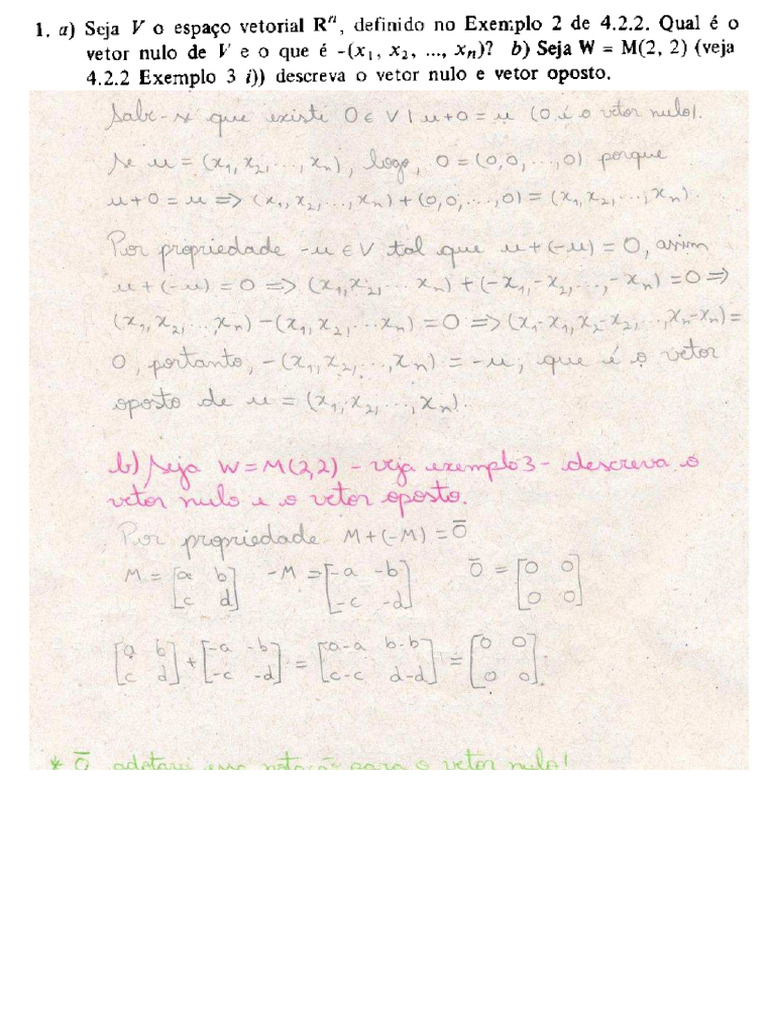 1. a) Seja V o espaço vetorial Rⁿ, definido no Exemplo 2 de 4.2.2. Qual é o
vetor nulo de V e o que é -(x₁, x₂, ..., xₙ)? b) Seja W = M(2, 2) (veja
4.2.2 Exemplo 3 i)) descreva o vetor nulo e vetor oposto.
Sabe-se que existe 0 ∈ V | u+0 = u (0 é o vetor nulo).
Se u = (x₁, x₂, ..., xₙ), logo, 0 = (0,0, ..., 0) porque
u+0 = u => (x₁, x₂, ..., xₙ) + (0,0, ..., 0) = (x₁, x₂, ..., xₙ).
Por propriedade -u ∈ V tal que u + (-u) = 0, assim
u + (-u) = 0 => (x₁, x₂, ... xₙ) + (-x₁, -x₂, ..., -xₙ) = 0 =>
(x₁, x₂, ..., xₙ) - (x₁, x₂, ... xₙ) = 0 => (x₁-x₁, x₂-x₂, ..., xₙ-xₙ) =
0, portanto, -(x₁, x₂, ..., xₙ) = -u, que é o vetor
oposto de u = (x₁, x₂, ..., xₙ).
b) Seja W = M(2,2) - veja exemplo 3 - descreva o
vetor nulo e o vetor oposto.
Por propriedade M + (-M) = Ō
M = [a b] -M = [-a -b] Ō = [0 0]
[c d] [-c -d] [0 0]
[a b] + [-a -b] = [a-a b-b] = [0 0]
[c d] [-c -d] [c-c d-d] [0 0].
* Ō adotarei essa notação para o vetor nulo!